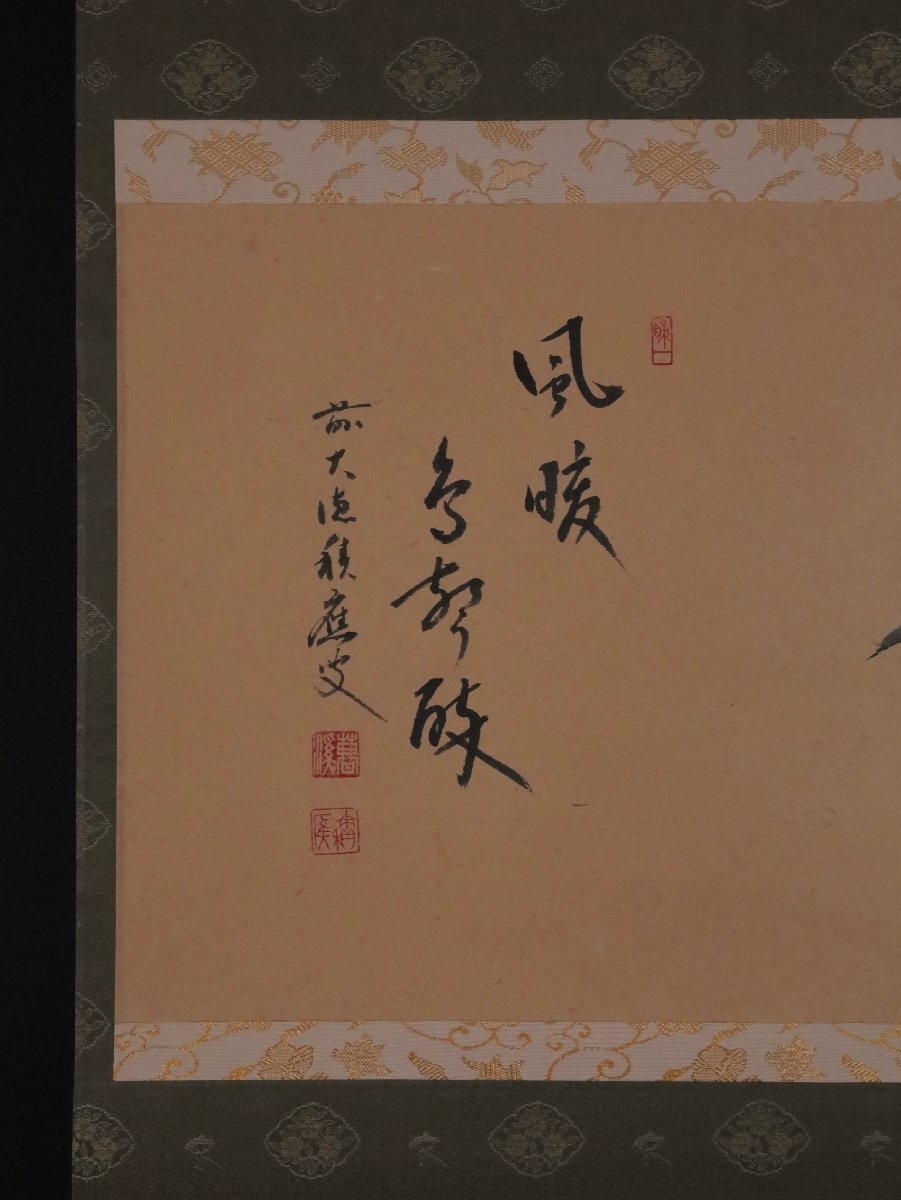 風暖
鳥聲碎
前大徳積應叟